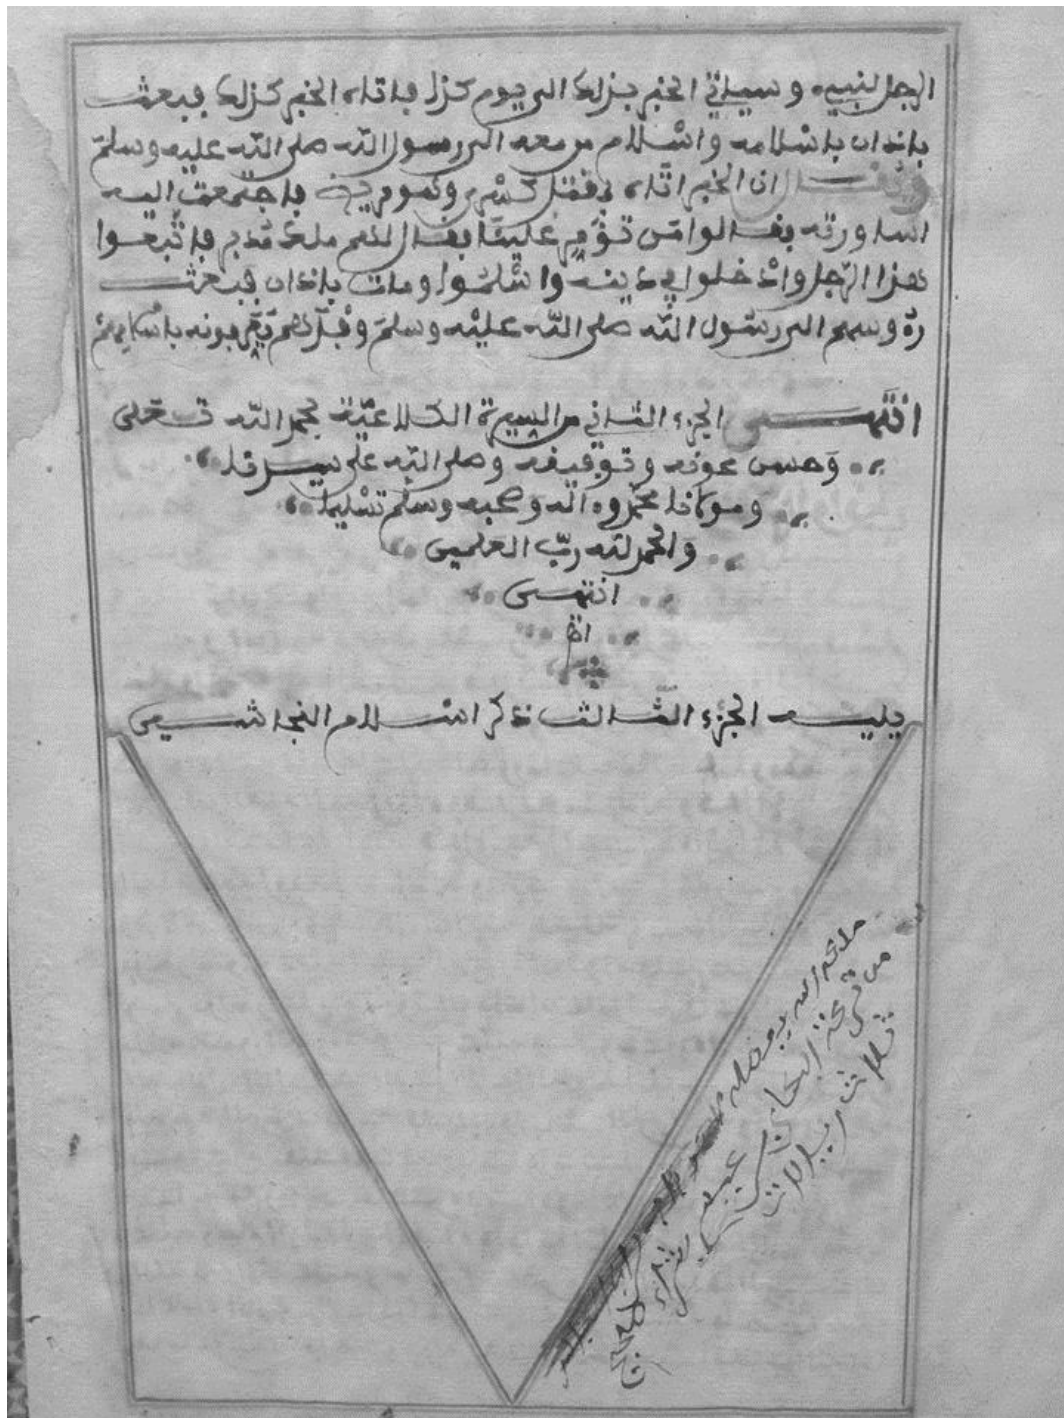 الرجل لنبيء وسيأتي الخبر بذلك الى يوم كذا فأتاه الخبر كذلك فبعث
باذان بإسلامه وإسلام من معه الى رسول الله صلى الله عليه وسلم
ويقال ان الخبر اتاه بقتل كسرى وهو مريض فاجتمعت اليه
اساورته فقالوا من تؤمر علينا فقال لهم ملك مقبل فاتبعوا
هذا الرجل وادخلوا في دينه واسلموا ومات باذان فبعث
وسهم الى رسول الله صلى الله عليه وسلم وفدهم يعرفونه بإسلامهم
انتهى الجزء الثاني من السيرة الكلاعية بحمد الله تعلى
وحسن عونه وتوفيقه وصلى الله على سيدنا
ومولانا محمد وءاله وصحبه وسلم تسليما
والحمد لله رب العلمين
انتهى
انتهى
يليه الجزء الثالث ذكر اسلام النجاشي
ملكه الله بفضله
من تركة
ثلاث ريالات